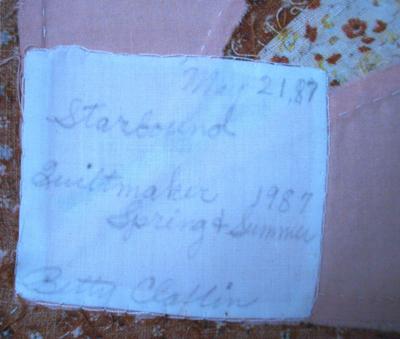 May 21, 87
Starbound
Quiltmaker 1987
Spring & Summer
Betty Claflin